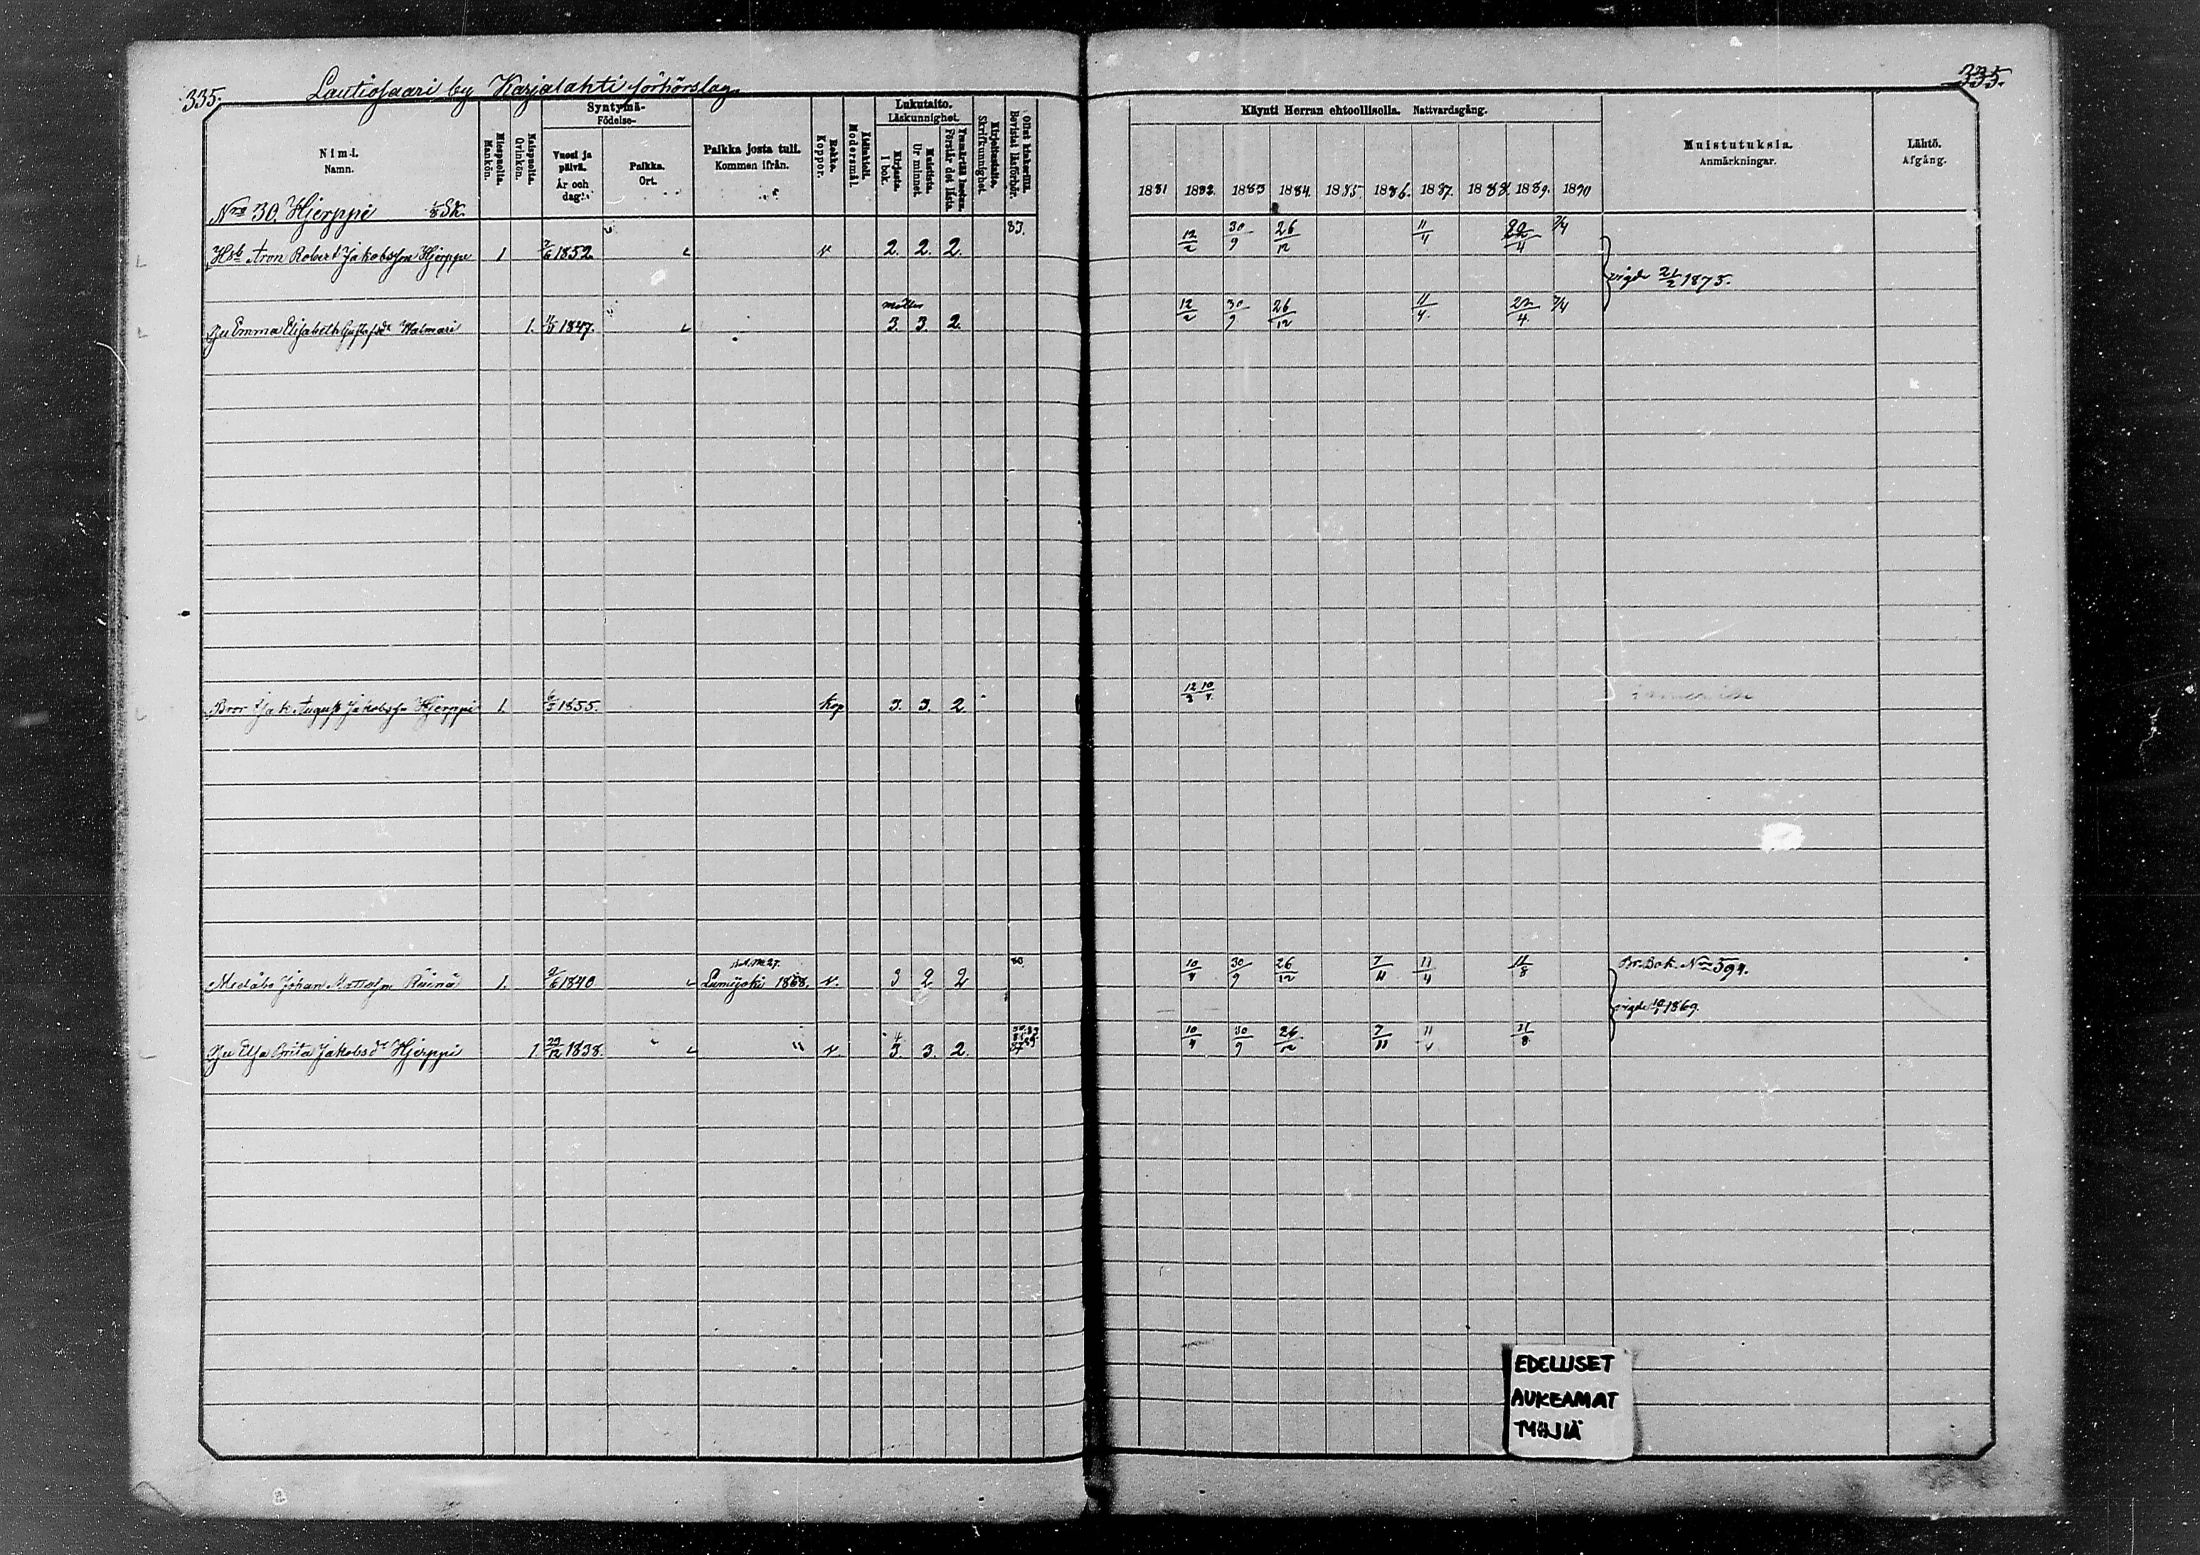 335. Lautiosaari by Karjalahti förhörslag. 335.
Nimi. Namn.
Miespuolia. Mankön.
Naispuolia. Qvinkön.
Syntymä- Födelse-
Vuosi ja päivä. År och dag.
Paikka. Ort.
Paikka josta tuli. Kommen ifrån.
Rokko. Koppor.
Modersmål.
Lukutaito. Läskunnighet.
Kirjasta. I bok.
Muistista. Ur minnet.
Förstår det lästa.
Kirjoitustaito. Skrifkunnighet.
Bevistat läsförhör.
Käynti Herran ehtoollisella. Nattvardsgång.
1881 1882. 1883 1884. 1885. 1886. 1887. 1888. 1889. 1890
Muistutuksia. Anmärkningar.
Lähtö. Afgång.
No 30 Hjerppi
83.
Hsb Aron Robert Jakobsson Hjerppe 1 1852. v 2. 2. 2. 12/2 30/9 26/12 11/4 22/4 7/4
vigde 21/2 1875.
Hu Emma Elisabeth Gustafsdr Walmari 1. 1847. 3. 3. 2. 12/2 30/9 26/12 11/4. 22/4. 7/4
Bror Isak August Jakobsson Hjerppi 1. 1855. Kop 3. 3. 2 12/3
Br. Bok. No 594.
Johan Mattsson 1. 9/6 1840 Lumijoki 1868. v. 3 2 2 80 10/4 30/9 26/12 7/11 11/4 11/8
vigde 1869.
Hu Elsa Brita Jakobsdr Hjerppi 1. 29/12 1838. " v. 3. 3. 2. 10/4 30/9 26/12 7/11 11/8
EDELLISET
AUKEAMAT
TYHJIÄ